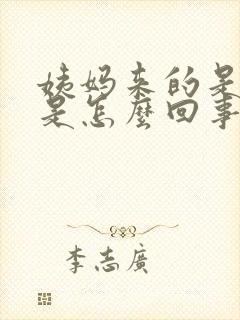 姨妈来的是
是怎麽回事
李志廣